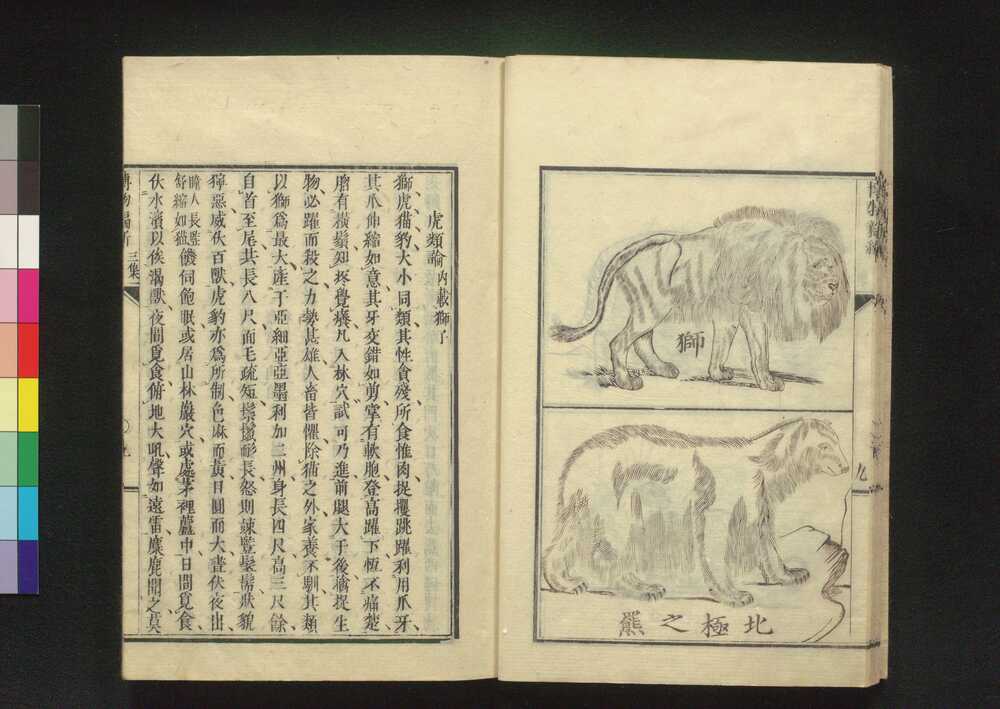 博物新編
九
獅
北極之羆
虎類論内載獅子
獅虎猫豹大小同類其性貪殘所食惟肉捉攫跳躍利用爪牙
其爪伸縮如意其牙交錯如剪掌有軟胞登高躍下恆不痛楚
有橫鬚知疼覺癢凡入林穴試可乃進前腿大于後擒捉生
物必躍而殺之力勢甚雄人畜皆懼除猫之外家養不馴其類
以獅爲最大産于亞細亞亞墨利加二州身長四尺高三尺餘
自首至尾共長八尺面毛疏短鬃鬣長怒則竦豎髮鬚狀貌
獰惡威伏百獸虎豹亦爲所制色麻而黃目圓而大晝伏夜出
瞳人長豎舒縮如猫饑伺飽眠或居山林巖穴或處茅裡蘆中日間覓食
伏水濱以俟渴獸夜間覓食俯地大吼聲如遠雷麋鹿聞之莫
博物新編 三集
九